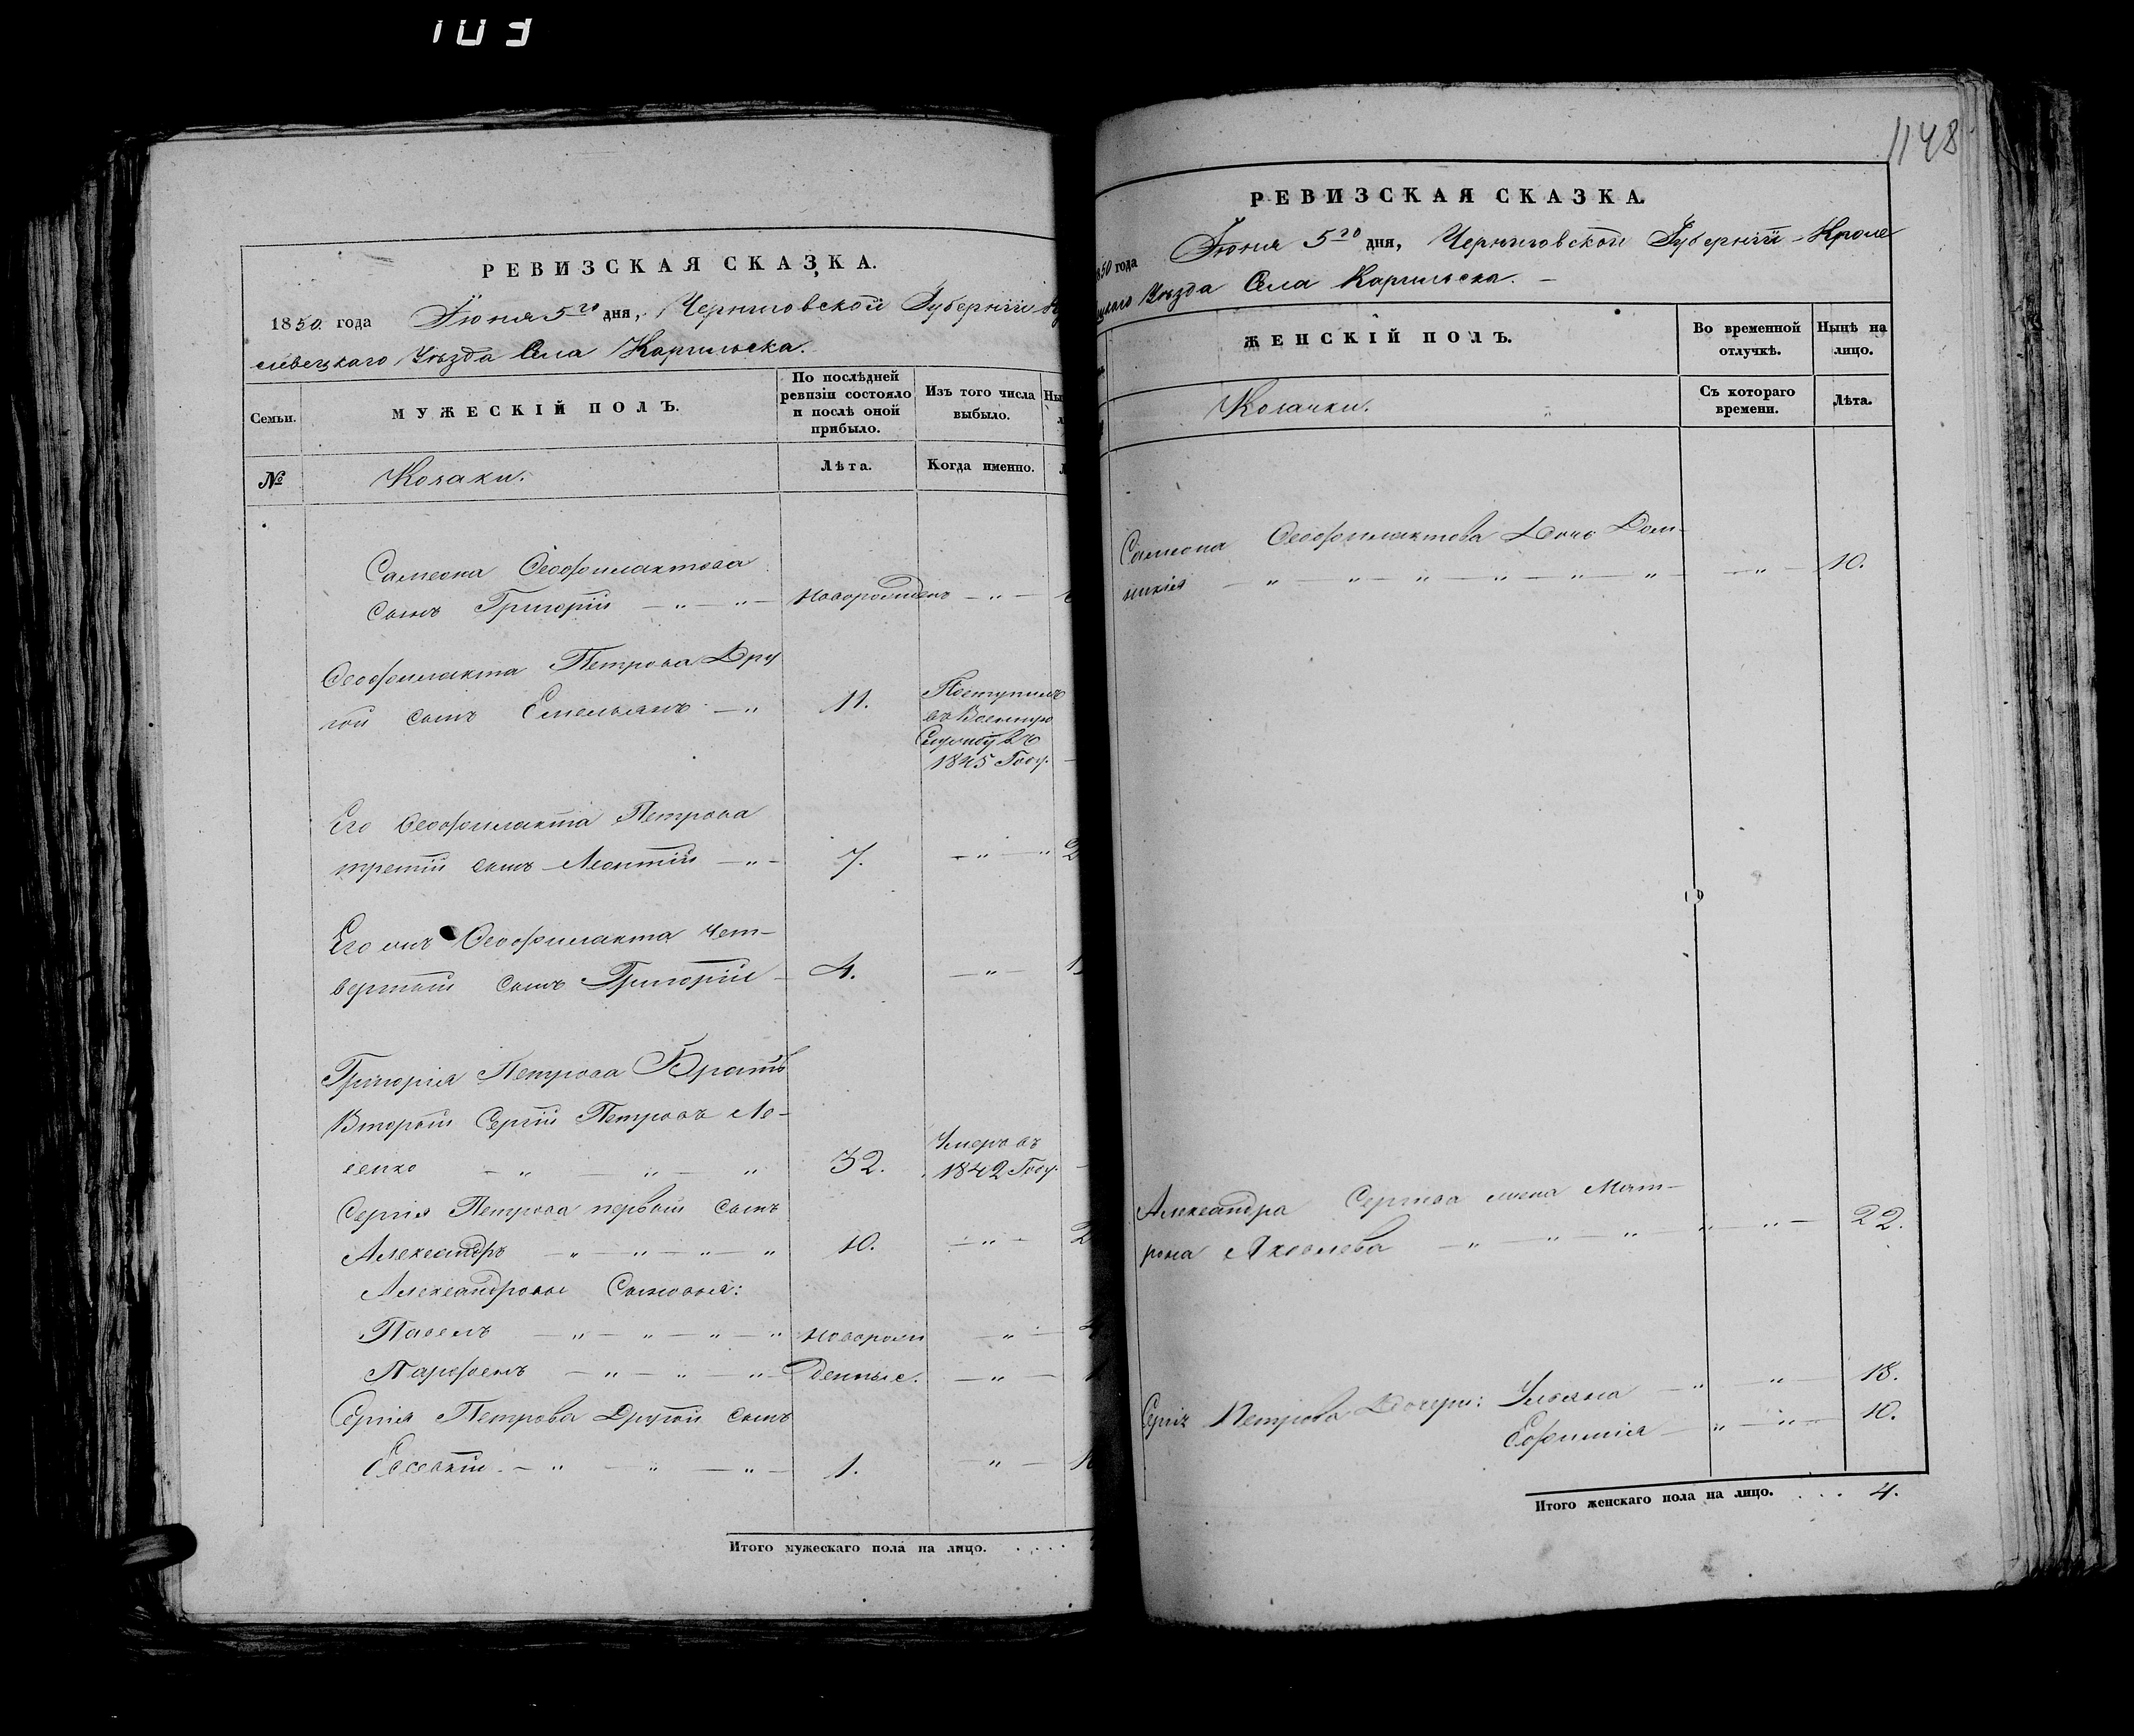 103
РЕВИЗСКАЯ СКАЗКА.
1850 года Іюня 5го дня, Черниговской Губерніи
слевецкаго Уѣзда Села Каргильска.
Семьи.
МУЖЕСКІЙ ПОЛЪ.
По послѣдней
ревизіи состояло
и послѣ оной
прибыло.
Изъ того числа
выбыло.
№
Козаки.
Лѣта.
Когда именно.
Самсона Феофилактова
сынъ Григорій — „ — „ — новорожденъ — „ —
Феофилакта Петрова Дру
гой сынъ Емельянъ — „ 11. Поступилъ
въ Военную
Службу въ
1845 Году.
Его Феофилакта Петрова
третій сынъ Леонтій — „ — 7. — „ — „
Его жъ Феофилакта Чет—
вертый сынъ Григорій — 4. — „ —
Григорія Петрова Братъ
Второй Сергій Петровъ Ле—
сенко — „ — „ — „ 32. Умеръ въ
1842 Году.
Сергія Петрова первый сынъ
Александръ — „ — „ — „ — „ 10. — „ —
Александровы Сыновья:
Павелъ — „ — „ — „ — „ новорож — „ —
Парфенъ — „ — „ — „ — денные. — „ —
Сергія Петрова Другой сынъ
Евсевій — „ — „ — „ — 1. — „ —
Итого мужескаго пола на лицо. . . . .
1148
РЕВИЗСКАЯ СКАЗКА.
850 года Іюня 5го дня, Черниговской Губерніи Кроле
Уѣзда Села Каргильска. —
ЖЕНСКІЙ ПОЛЪ.
Во временной
отлучкѣ.
Нынѣ на
лицо.
Козачки.
Съ котораго
времени.
Лѣта.
Самсона Феофилактова Дочь Дом—
никія — „ — „ — „ — „ — „ — „ — „ — 10.
Александра Сергѣева жена Мат—
рона Яковлева — „ — „ — „ — „ — „ — 22.
Сергія Петрова Дочери: Ульяна — „ — „ — 18.
Ефимія — „ — „ — 10.
Итого женскаго пола на лицо. . . . 4.